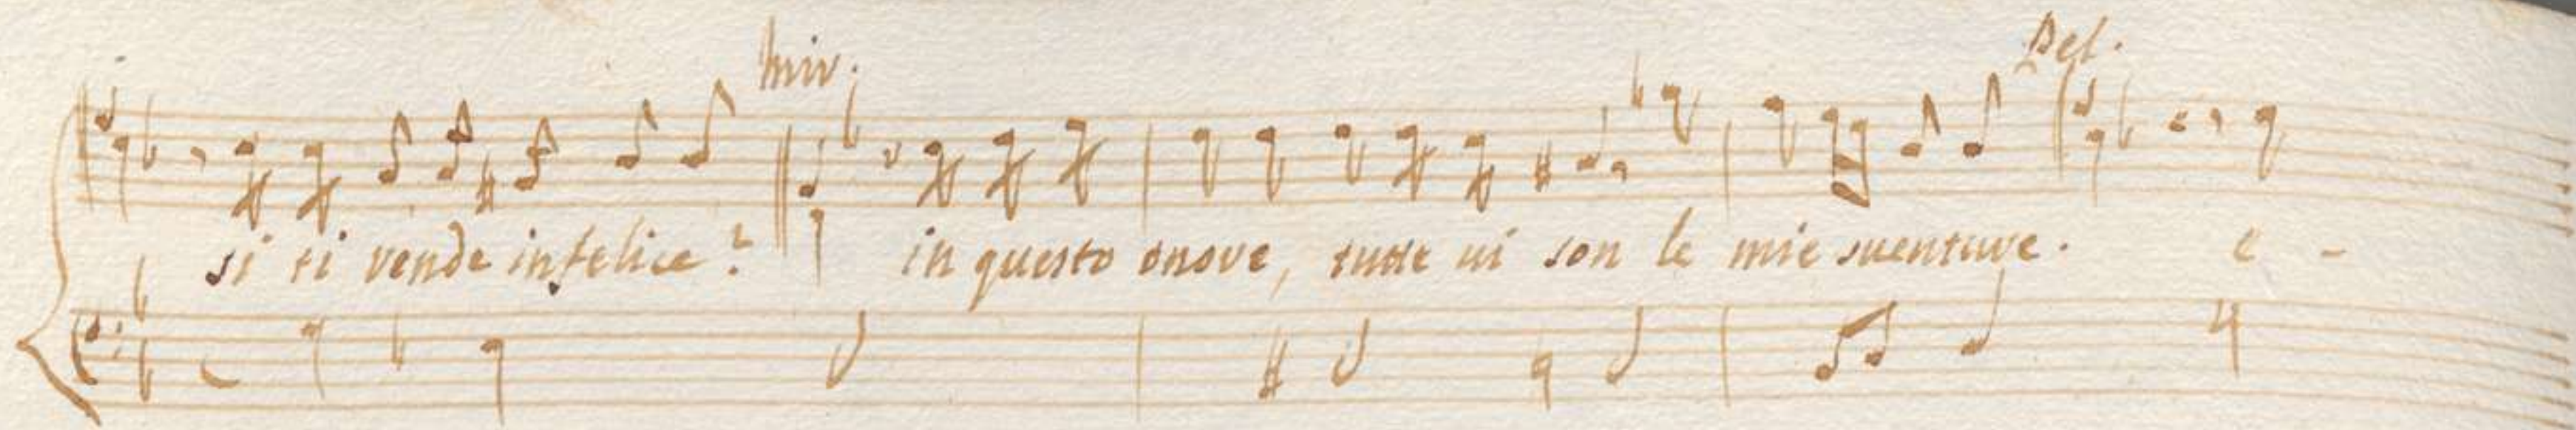 Mir. Del.
si ti vende infelice? in questo onore, tutte ui son le mie suenture. e -